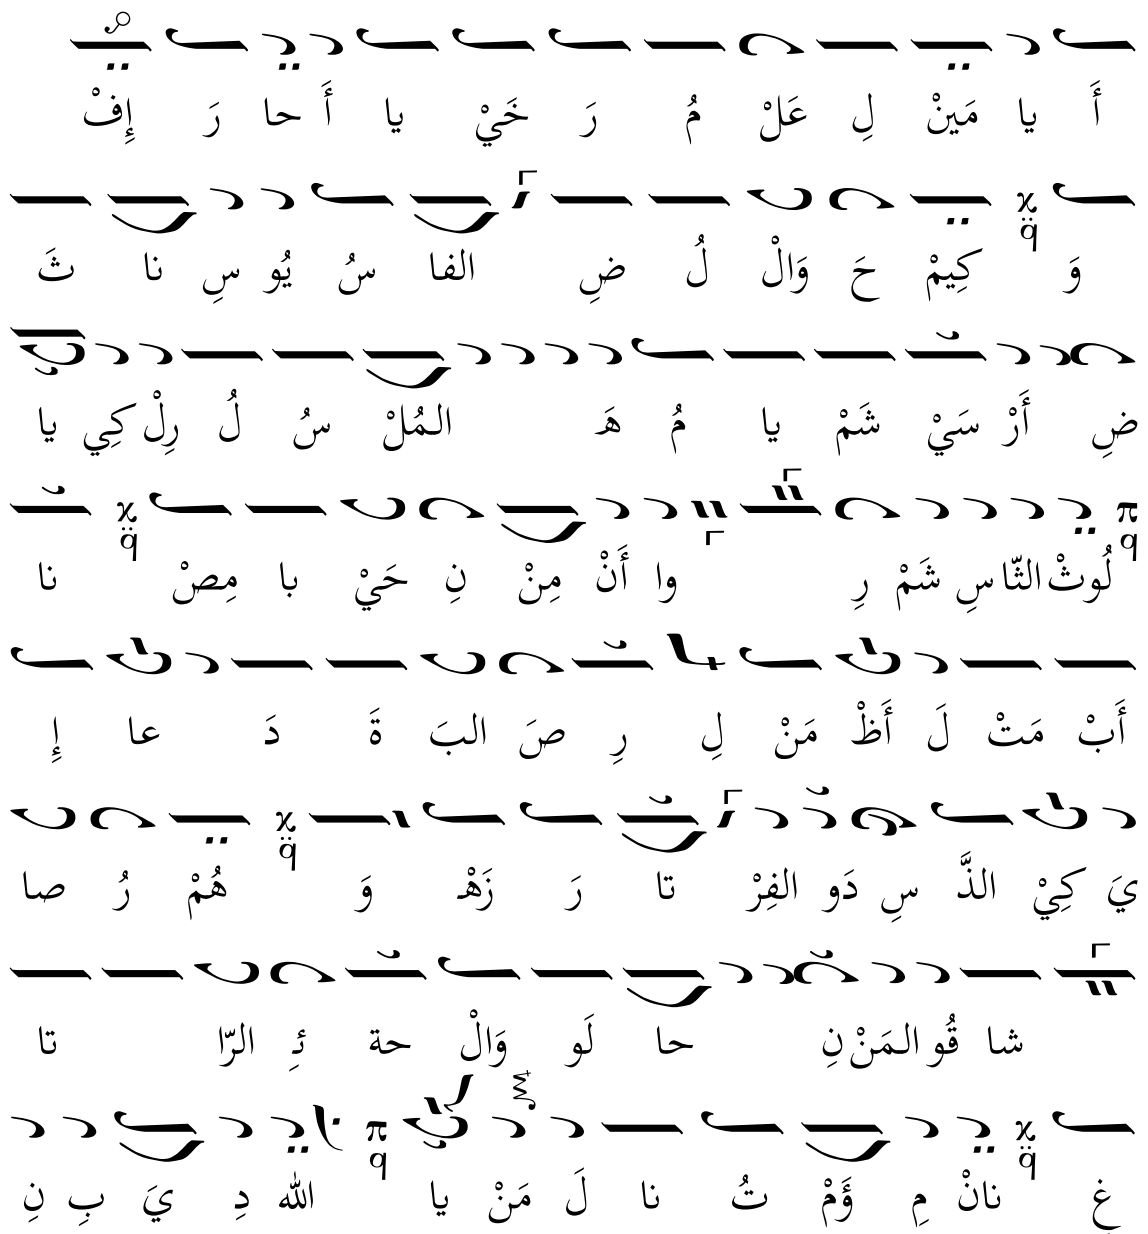 أَ يا مَينْ لِ عَلْ مُ رَ خَيْ يا أَ حا رَ إِفْ
وَ كِيمْ حَ وَالْ لُ ضِ الفا سُ يُو سِ نا ثَ
ضِ أَرْ سَيْ شَمْ يا مُ هَ المُلْ سُ لُ رِلْ كِي يا
لُوثْ الثّا سِ شَمْ رِ وا أَنْ مِنْ نِ حَيْ با مِصْ نا
أَبْ مَتْ لَ أَظْ مَنْ لِ رِ صَ البَ ةَ دَ عا إِ
يَ كِيْ الذَّ سِ دَو الفِرْ تا رَ زَهْ وَ هُمْ رُ صا
شا قُو المَنْ نِ حا لَو وَالْ حة ئِ الرّا تا
غِ نانْ مِ ؤَمْ تُ نا لَ مَنْ يا الله دِ يَ بِ نِ